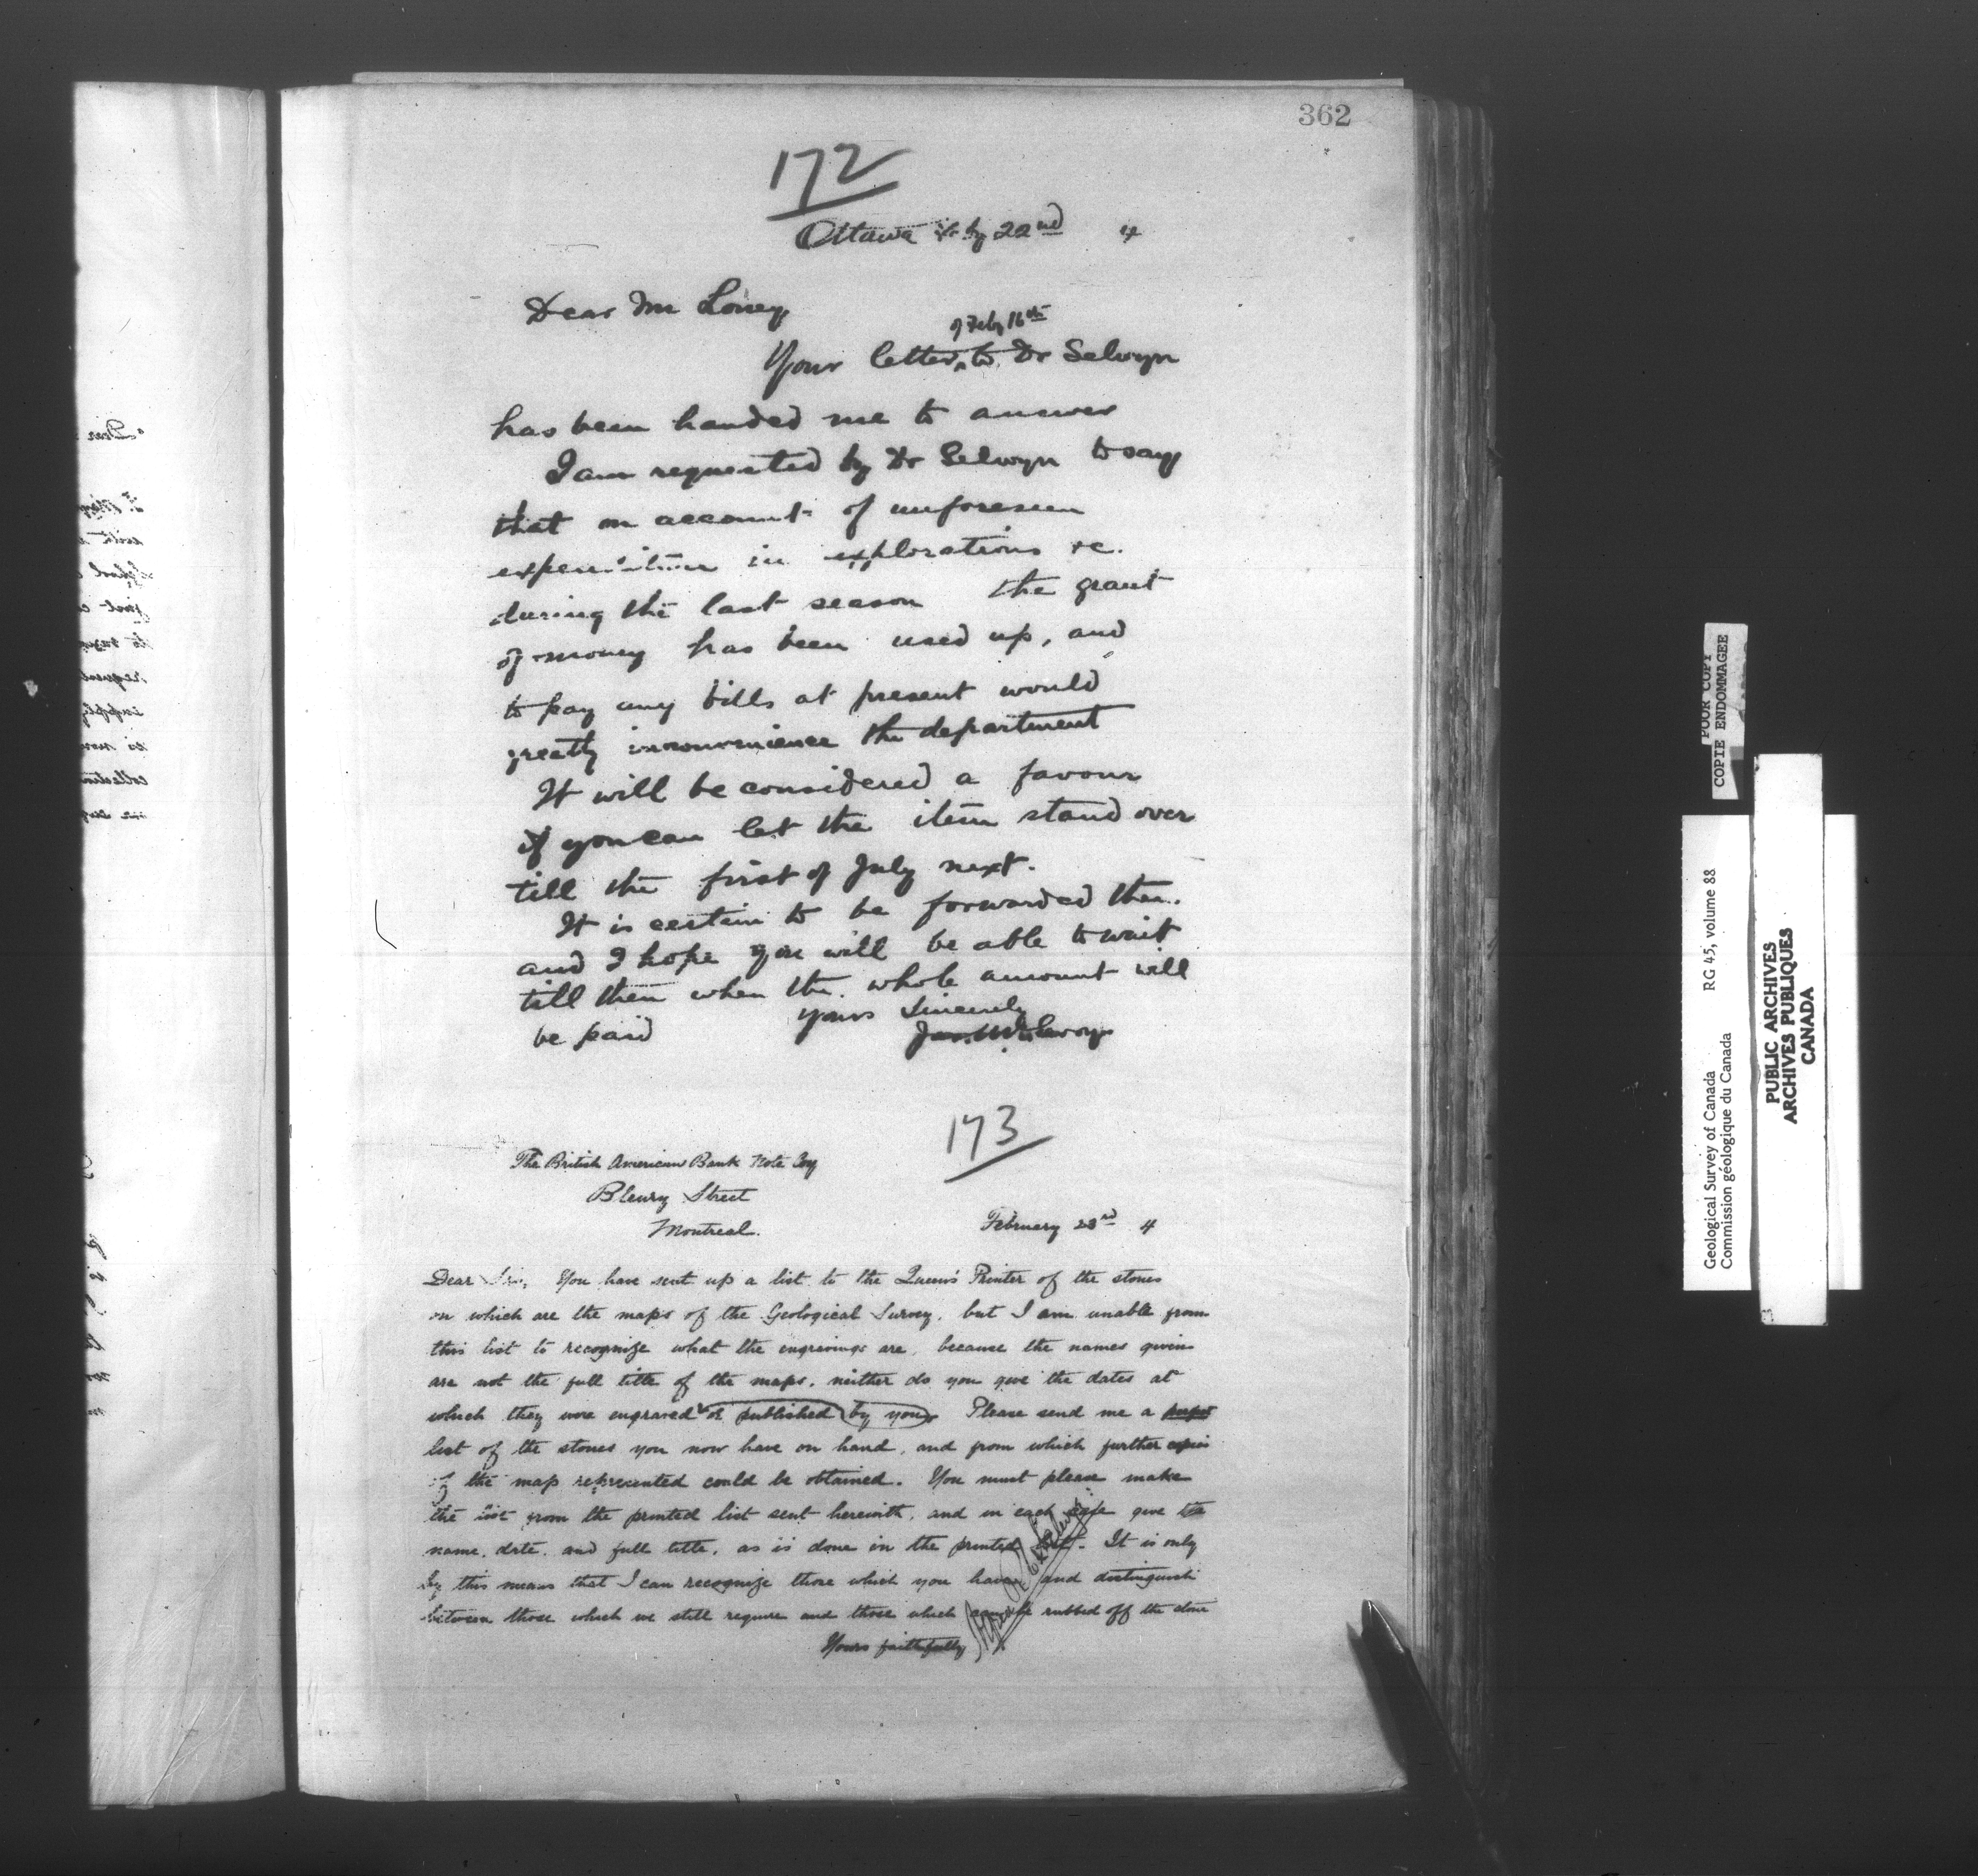 362
172
Ottawa Feby 22nd 4
Dear Mr Loney
of Feby 16th
Your letter ^ to Dr Selwyn
has been handed me to answer
I am requested by Dr Selwyn to say
that on account of unforeseen
expenditure in explorations &c.
during the last season the grant
of money has been used up, and
to pay any bills at present would
greatly inconvenience the department
It will be considered a favour
if you can let the item stand over
till the first of July next.
It is certain to be forwarded then.
and I hope you will be able to wait
till then when the whole amount will
be paid yours Sincerely
173
The British American Bank Note Coy
Bleury Street
Montreal. February 23rd 4
Dear Sir, You have sent up a list to the Queen's Printer of the stones
on which are the maps of the Geological Survey, but I am unable from
this list to recognize what the engravings are, because the names given
are not the full title of the maps, neither do you give the dates at
which they were engraved or published by you. Please send me a
list of the stones you now have on hand, and from which further copies
of the map represented could be obtained. You must please make
the list from the printed list sent herewith, and in each case give the
name, date, and full title, as is done in the printed list. It is only
by this means that I can recognize those which you have and distinguish
between those which we still require and those which can be rubbed off the stone
Yours faithfully
POOR COPY
COPIE ENDOMMAGEE
Geological Survey of Canada RG 45, volume 88
Commission géologique du Canada
PUBLIC ARCHIVES
ARCHIVES PUBLIQUES
CANADA